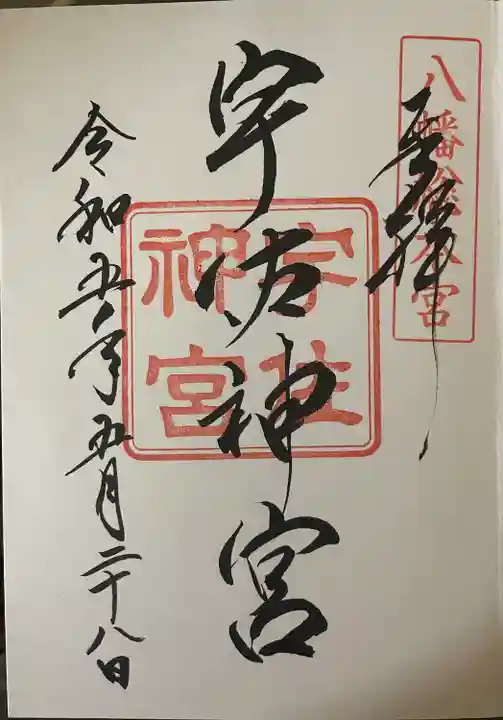 八幡総本宮
奉拝
宇佐神宮
宇佐
神宮
令和五年五月二十八日